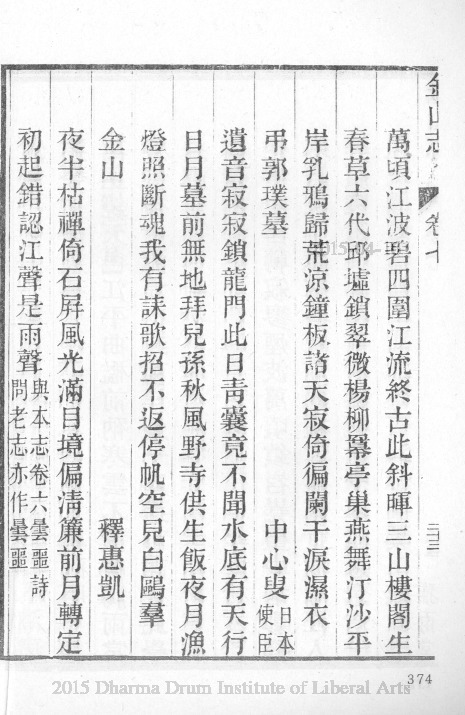 金山志
卷七
萬頃江波碧四圍江流終古此斜暉三山樓閣生
春草六代邱墟鎖翠微楊柳幕亭巢燕舞汀沙平
岸乳鴉歸荒涼鐘板諸天寂倚徧闌干淚濕衣
弔郭璞墓 中心叟日本使臣
遺音寂寂鎖龍門此日靑囊竟不聞水底有天行
日月墓前無地拜兒孫秋風野寺供生飯夜月漁
燈照斷魂我有誄歌招不返停帆空見白鷗羣
金山 釋惠凱
夜半枯禪倚石屛風光滿目境偏淸簾前月轉定
初起錯認江聲是雨聲與本志卷六曇噩詩同老志亦作曇噩
三三
374
2015 Dharma Drum Institute of Liberal Arts